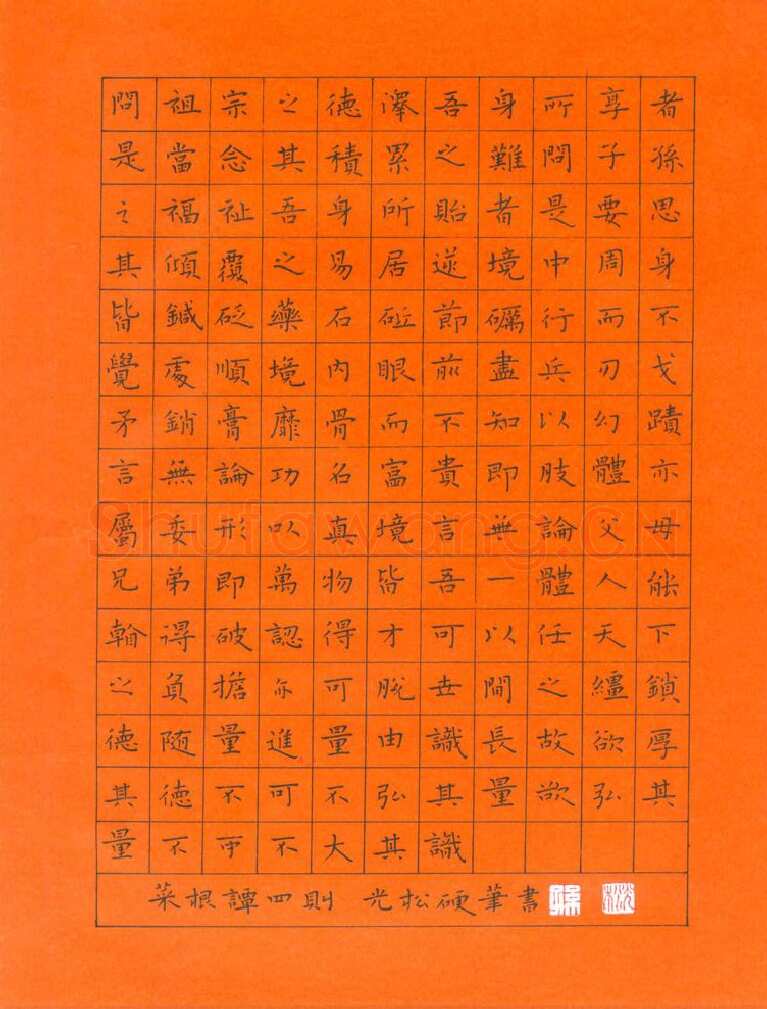 問祖宗之德澤吾身所享者
是當念其積累之難問子孫
之福祉吾身所貽者是要思
其傾覆之易居逆境中周身
皆鍼砭藥石砥節礪行而不
覺處順境內眼前盡兵刃戈
矛銷膏靡骨而不知以幻蹟
言無論功名富貴即肢體亦
屬委形以真境言無論父母
兄弟即萬物皆吾一體人能
得破認得才可以任天下
之負擔亦可脫世間之韁鎖
德随量進量由識長故欲厚
其德不可不弘其量欲弘其
量不可不大其識
菜根譚四則 光松硬筆書
Shufawang.CN